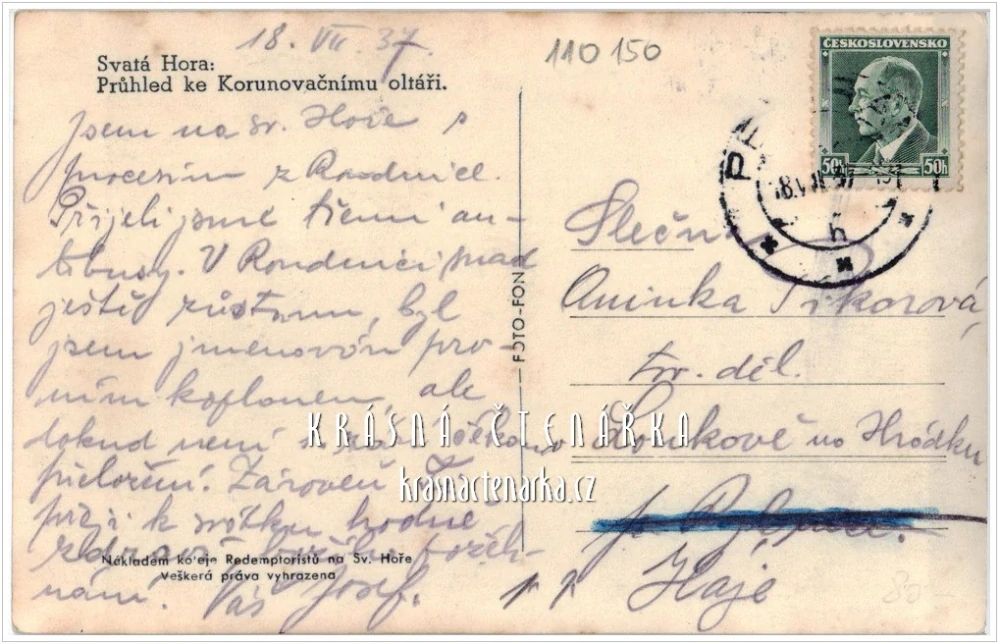 18. VII. 37.
110 150
Svatá Hora:
Průhled ke Korunovačnímu oltáři.
Jsem na sv. Hoře s
procesím z Roudnice.
Přijeli jsme třemi au-
tobusy. V Roudnici snad
ještě zůstanu, byl
jsem jmenován prv-
ním kaplanem, ale
dokud není
přeložení. Zároveň
přeji k svátku hodně
zdraví božéh-
nání. Váš Josef.
Nákladem kolejn Redemptoristů na Sv. Hoře
Veškerá práva vyhrazena
FOTO-FON
ČESKOSLOVENSKO
50h 50h
Slečna
Aninka
v Hrádku
Háje
KRÁSNÁ ČTENÁŘKA
krasnactenarka.cz